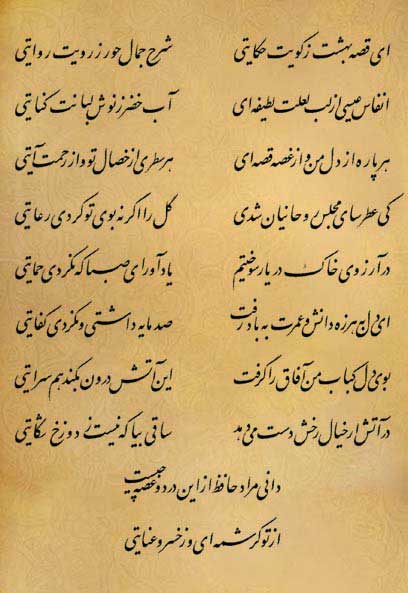 ای قصه بهشت ز کویت حکایتی شرح جمال حور ز رویت روایتی
انفاس عیسی از لب لعلت لطیفه‌ای آب خضر ز نوش لبانت کنایتی
هر پاره از دل من و از غصه قصه‌ای هر سطری از خصال تو و از رحمت آیتی
کی عطرسای مجلس روحانیان شدی گل را اگر نه بوی تو کردی رعایتی
در آرزوی خاک در یار سوختیم یاد آور ای صبا که نکردی حمایتی
ای دل به هرزه دانش و عمرت به باد رفت صد مایه داشتی و نکردی کفایتی
بوی دل کباب من آفاق را گرفت این آتش درون بکند هم سرایتی
در آتش ار خیال رخش دست می‌دهد ساقی بیا که نیست ز دوزخ شکایتی
دانی مراد حافظ از این درد و غصه چیست
از تو کرشمه‌ای و ز خسرو عنایتی